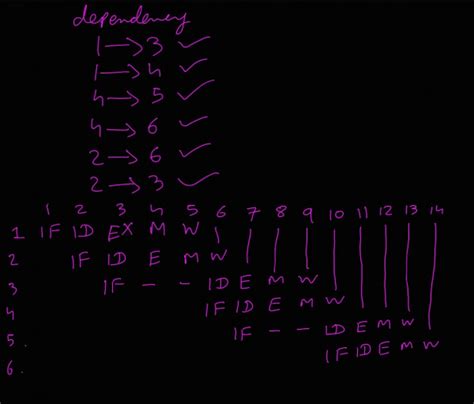 dependency
1 → 3 ✓
1 → 4 ✓
4 → 5 ✓
4 → 6 ✓
2 → 6 ✓
2 → 3 ✓
1 2 3 4 5 6 7 8 9 10 11 12 13 14
1 IF ID EX M W
2 IF ID E M W
3 IF - - ID E M W
4 IF ID E M W
5. IF - - ID E M W
6. IF ID E M W